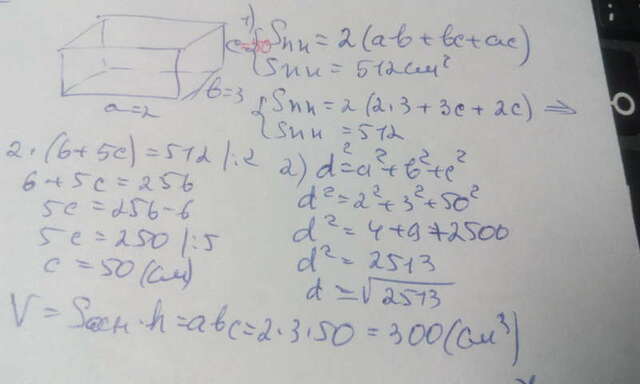 1) Sпп = 2(ab+bc+ac)
Sпп = 512см²
c=50
b=3
a=2
Sпп = 2(2·3+3c+2c) ⇒
Sпп = 512
2·(6+5c)=512 |:2
6+5c=256
5c=256-6
5c=250 |:5
c=50(см)
2) d²=a²+b²+c²
d²=2²+3²+50²
d²=4+9+2500
d²=2513
d=√2513
V=Sосн·h=abc=2·3·50=300(см³)